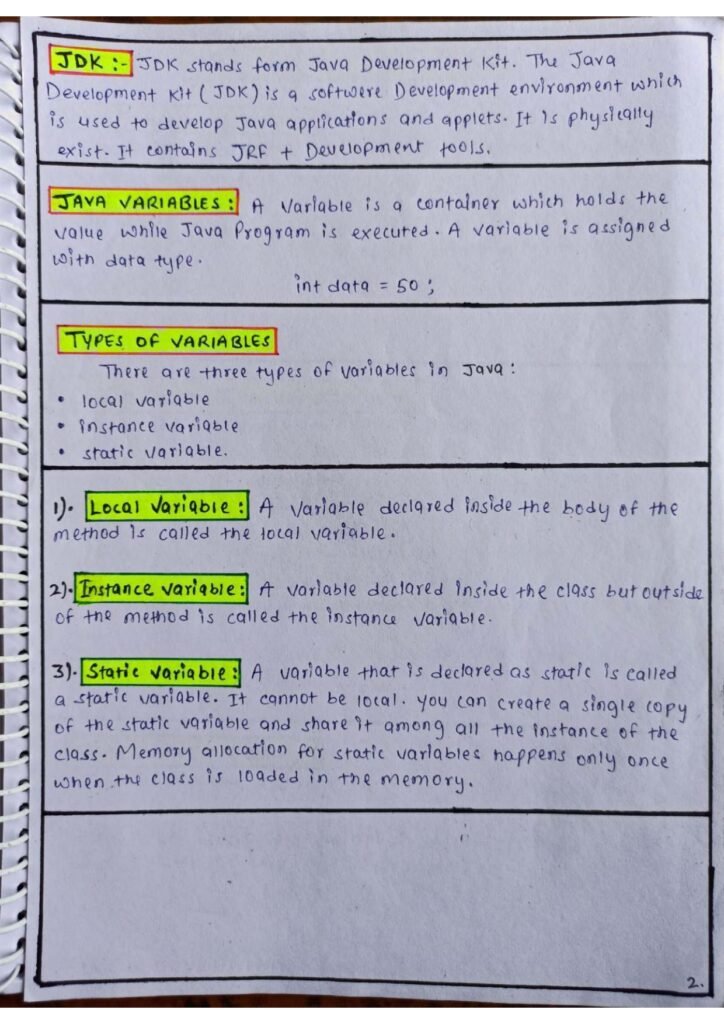 JDK :- JDK stands form Java Development Kit. The Java
Development Kit ( JDK) is a softwere Development environment which
is used to develop Java applications and applets. It is physically
exist. It contains JRE + Development tools.
JAVA VARIABLES : A variable is a container which holds the
value while Java Program is executed. A variable is assigned
with data type.
int data = 50 ;
TYPES OF VARIABLES
There are three types of variables in Java :
• local variable
• instance variable
• static variable.
1). Local Variable : A variable declared inside the body of the
method is called the local variable.
2). Instance variable : A variable declared inside the class but outside
of the method is called the instance variable.
3). Static variable : A variable that is declared as static is called
a static variable. It cannot be local. you can create a single copy
of the static variable and share it among all the instance of the
class. Memory allocation for static variables happens only once
when the class is loaded in the memory.
2.